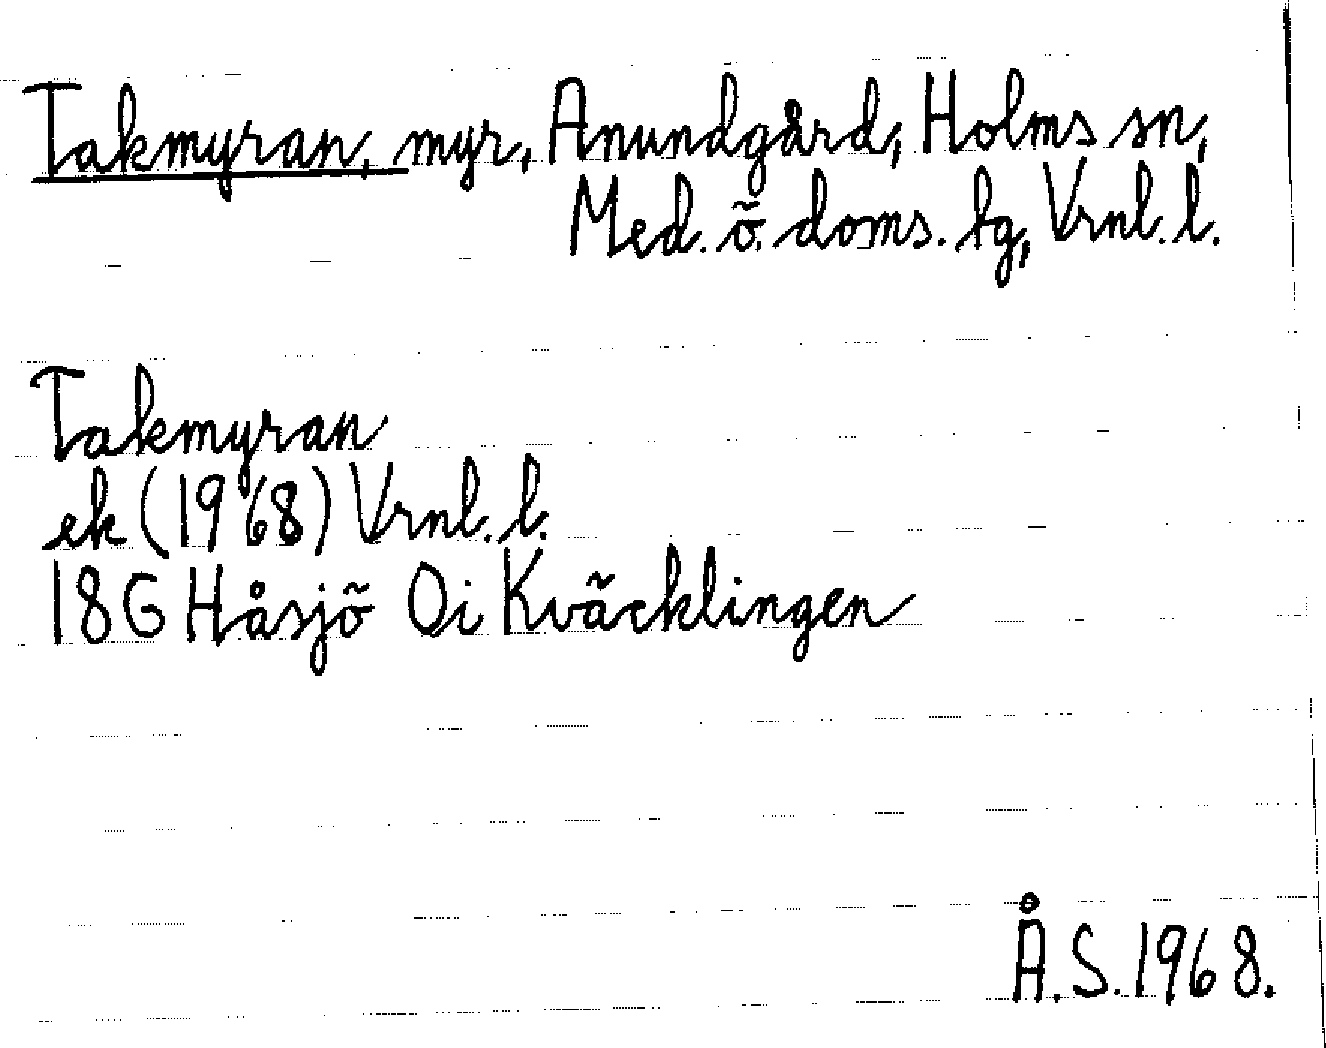 Takmyran, myr, Anundgård, Holms sn,
Med. ö. doms. sg, Vrnl. l.
Takmyran
ek (1968) Vrnl. l.
18G Håsjö Oi Kväcklingen
Å.S. 1968.